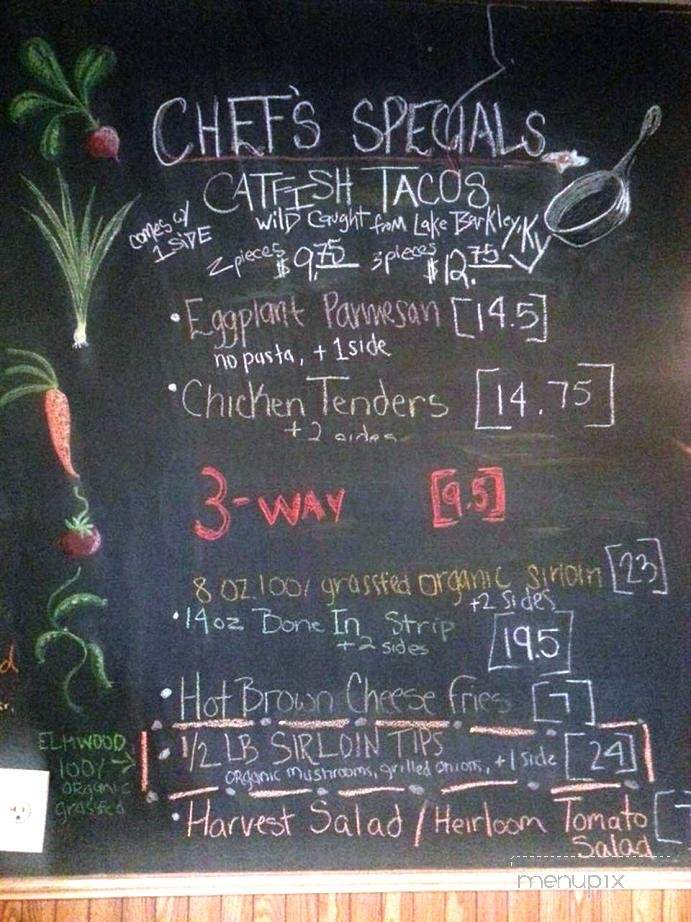 CHEF'S SPECIALS
CATFISH TACOS
comes w/
1 SIDE
wild caught from Lake Barkley, Ky
2 pieces $9.75 3 pieces $12.75
• Eggplant Parmesan [14.5]
no pasta, + 1 side
• Chicken Tenders [14.75]
+ 2 sides
3-WAY [9.5]
8 oz 100% grassfed organic sirloin [23]
+2 sides
• 14oz Bone In Strip [19.5]
+ 2 sides
• Hot Brown Cheese fries [7]
ELMWOOD
100%
ORGANIC
grassfed
• 1/2 LB SIRLOIN TIPS [24]
organic mushrooms, grilled onions, +1 side
• Harvest Salad / Heirloom Tomato
Salad
menupix